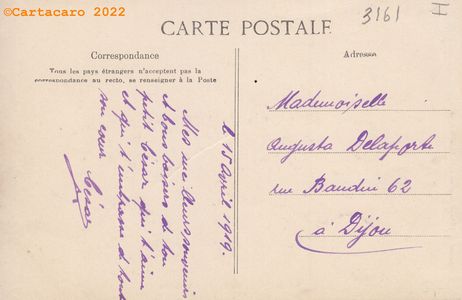 ©Cartacaro 2022
CARTE POSTALE
3161
I
Correspondance
Tous les pays étrangers n'acceptent pas la
correspondance au recto, se renseigner à la Poste
Adresse
le 15 Avril 1919.
Mes meilleurs souvenirs
et bons baisers de ton
petit César qui t'aime
et qui t'embrasse de tout
son cœur
César
Mademoiselle
Augusta Delaporte
rue Baudin 62
à Dijon